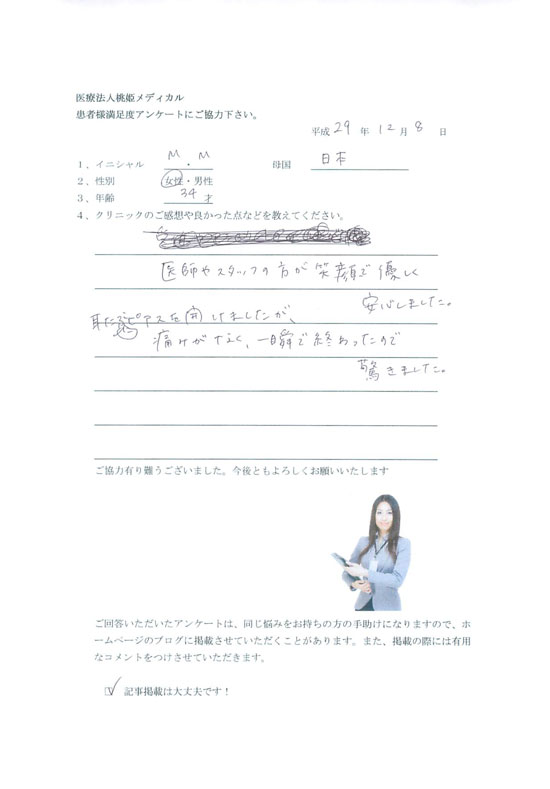 医療法人桃姫メディカル
患者様満足度アンケートにご協力下さい。
平成 29 年 12 月 8 日
1、イニシャル M ・ M 母国 日本
2、性別 女性・男性
3、年齢 34 才
4、クリニックのご感想や良かった点などを教えてください。
医師やスタッフの方が笑顔で優しく
安心しました。
耳たぶピアスを開けましたが、
痛みがなく、一瞬で終わったので
驚きました。
ご協力有り難うございました。今後ともよろしくお願いいたします
ご回答いただいたアンケートは、同じ悩みをお持ちの方の手助けになりますので、ホ
ームページのブログに掲載させていただくことがあります。また、掲載の際には有用
なコメントをつけさせていただきます。
記事掲載は大丈夫です！